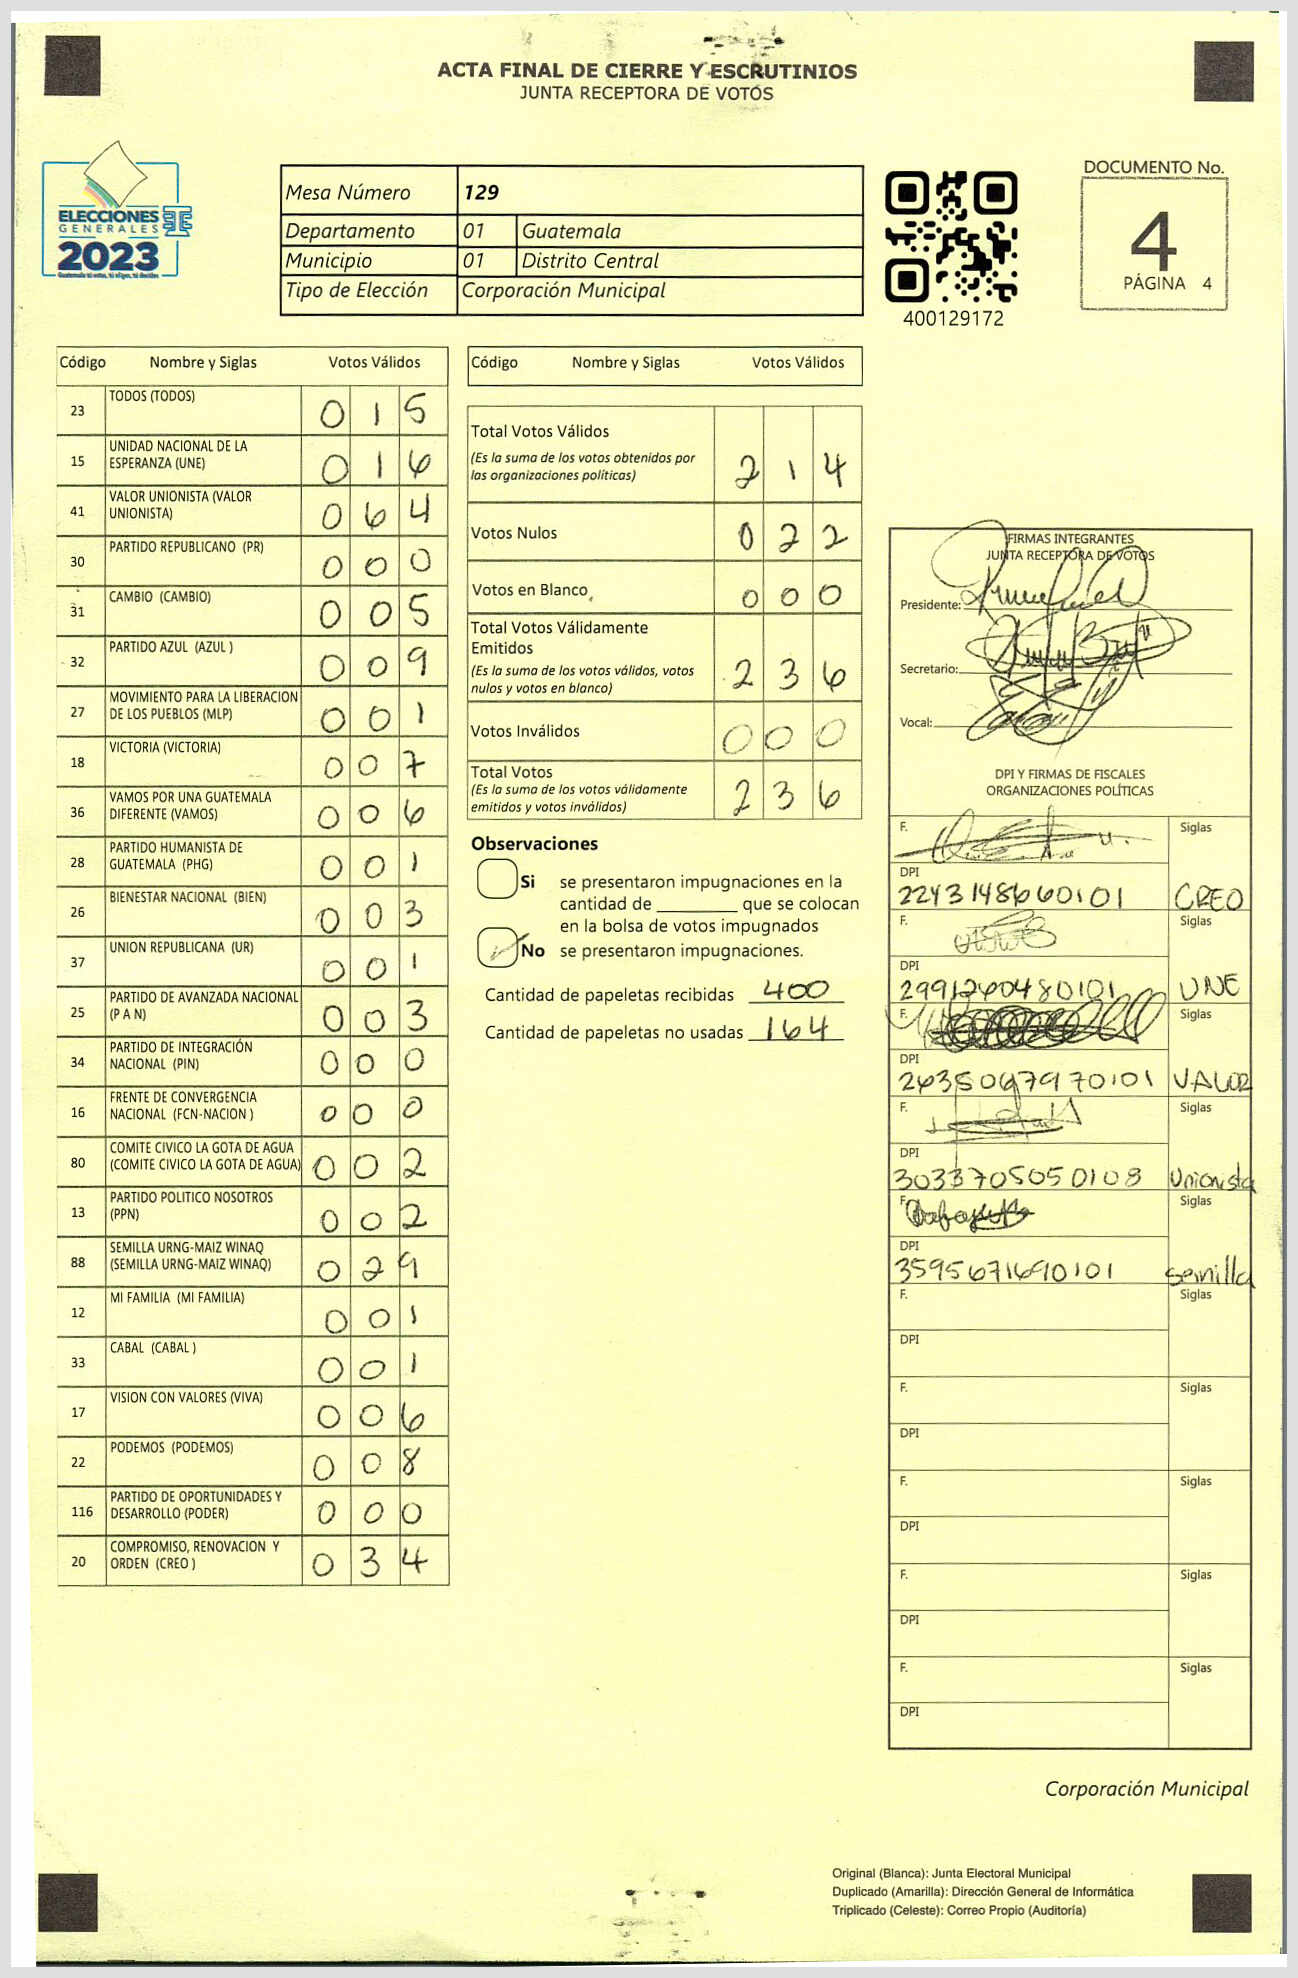 ACTA FINAL DE CIERRE Y ESCRUTINIOS
JUNTA RECEPTORA DE VOTOS
ELECCIONES
GENERALES
2023
Guatemala tú votas, tú eliges, tú decides
Mesa Número 129
Departamento 01 Guatemala
Municipio 01 Distrito Central
Tipo de Elección Corporación Municipal
400129172
DOCUMENTO No.
4
PÁGINA 4
Código Nombre y Siglas Votos Válidos
23 TODOS (TODOS) 0 1 5
15 UNIDAD NACIONAL DE LA
ESPERANZA (UNE) 0 1 6
41 VALOR UNIONISTA (VALOR
UNIONISTA) 0 6 4
30 PARTIDO REPUBLICANO (PR) 0 0 0
31 CAMBIO (CAMBIO) 0 0 5
32 PARTIDO AZUL (AZUL ) 0 0 9
27 MOVIMIENTO PARA LA LIBERACION
DE LOS PUEBLOS (MLP) 0 0 1
18 VICTORIA (VICTORIA) 0 0 7
36 VAMOS POR UNA GUATEMALA
DIFERENTE (VAMOS) 0 0 6
28 PARTIDO HUMANISTA DE
GUATEMALA (PHG) 0 0 1
26 BIENESTAR NACIONAL (BIEN) 0 0 3
37 UNION REPUBLICANA (UR) 0 0 1
25 PARTIDO DE AVANZADA NACIONAL
(P A N) 0 0 3
34 PARTIDO DE INTEGRACIÓN
NACIONAL (PIN) 0 0 0
16 FRENTE DE CONVERGENCIA
NACIONAL (FCN-NACION ) 0 0 0
80 COMITE CIVICO LA GOTA DE AGUA
(COMITE CIVICO LA GOTA DE AGUA) 0 0 2
13 PARTIDO POLITICO NOSOTROS
(PPN) 0 0 2
88 SEMILLA URNG-MAIZ WINAQ
(SEMILLA URNG-MAIZ WINAQ) 0 2 9
12 MI FAMILIA (MI FAMILIA) 0 0 1
33 CABAL (CABAL ) 0 0 1
17 VISION CON VALORES (VIVA) 0 0 6
22 PODEMOS (PODEMOS) 0 0 8
116 PARTIDO DE OPORTUNIDADES Y
DESARROLLO (PODER) 0 0 0
20 COMPROMISO, RENOVACION Y
ORDEN (CREO ) 0 3 4
Código Nombre y Siglas Votos Válidos
Total Votos Válidos
(Es la suma de los votos obtenidos por
las organizaciones políticas) 2 1 4
Votos Nulos 0 2 2
Votos en Blanco 0 0 0
Total Votos Válidamente
Emitidos
(Es la suma de los votos válidos, votos
nulos y votos en blanco) 2 3 6
Votos Inválidos 0 0 0
Total Votos
(Es la suma de los votos válidamente
emitidos y votos inválidos) 2 3 6
Observaciones
Si se presentaron impugnaciones en la
cantidad de ________ que se colocan
en la bolsa de votos impugnados
No se presentaron impugnaciones.
Cantidad de papeletas recibidas 400
Cantidad de papeletas no usadas 164
FIRMAS INTEGRANTES
JUNTA RECEPTORA DE VOTOS
Presidente:
Secretario:
Vocal:
DPI Y FIRMAS DE FISCALES
ORGANIZACIONES POLÍTICAS
F. Siglas
DPI
2243148660101 CREO
F. Siglas
DPI
2991260480101 UNE
F. Siglas
DPI
2635067970101 VALOR
F. Siglas
DPI
3033705050108 Unionista
F. Siglas
DPI
3595671690101 semilla
F. Siglas
DPI
F. Siglas
DPI
F. Siglas
DPI
F. Siglas
DPI
F. Siglas
DPI
Corporación Municipal
Original (Blanca): Junta Electoral Municipal
Duplicado (Amarilla): Dirección General de Informática
Triplicado (Celeste): Correo Propio (Auditoría)